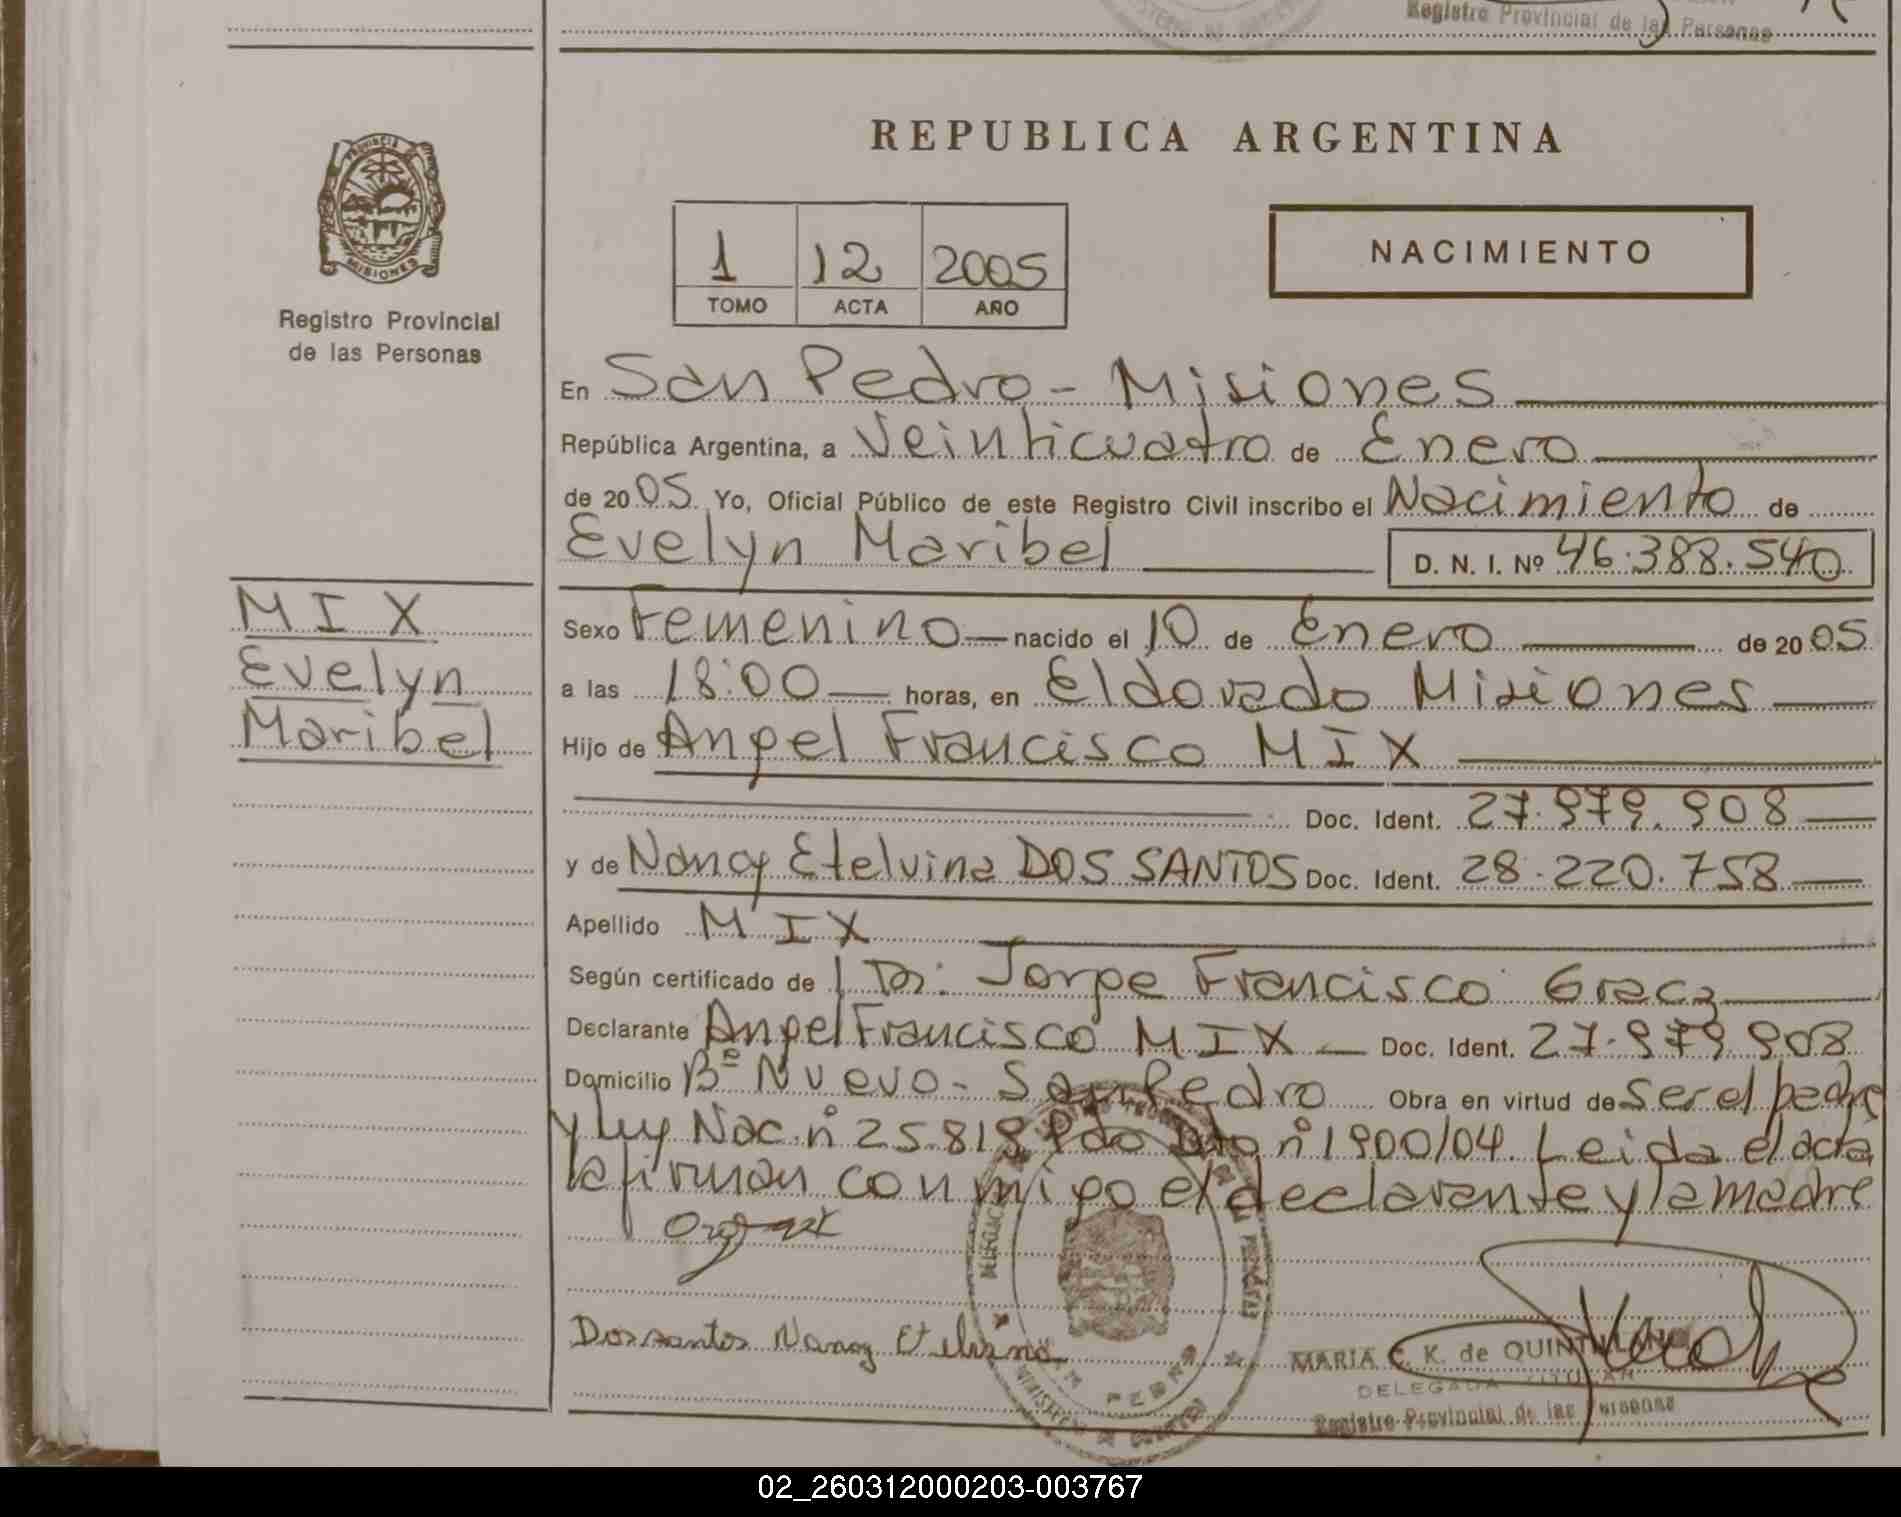 Registro Provincial de las Personas
REPUBLICA ARGENTINA
PROVINCIA DE
MISIONES
Registro Provincial
de las Personas
1 12 2005
TOMO ACTA AÑO
NACIMIENTO
En San Pedro - Misiones
República Argentina, a Veinticuatro de Enero
de 2005 Yo, Oficial Público de este Registro Civil inscribo el Nacimiento de
Evelyn Maribel
D. N. I. Nº 46.388.540
MIX
Evelyn
Maribel
Sexo Femenino nacido el 10 de Enero de 2005
a las 18:00 horas, en Eldorado Misiones
Hijo de Angel Francisco MIX
Doc. Ident. 27.979.908
y de Nancy Etelvina DOS SANTOS Doc. Ident. 28.220.758
Apellido MIX
Según certificado de Dr: Jorge Francisco
Declarante Angel Francisco MIX Doc. Ident. 27.979.908
Domicilio Bº Nuevo - San Pedro Obra en virtud de ser el padre
y Ley Nac. nº 25819 Pdo Dto nº 1900/04. Leida el acta
la firman conmigo el declarante y la madre
Dossantos Nancy Etelvina
SAN PEDRO
MARIA C. K. de QUINTANA
DELEGADA TITULAR
Registro Provincial de las Personas
02_260312000203-003767